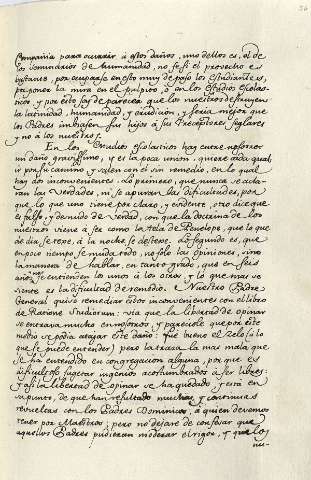 Compañia para ocurrir à estos daños, uno dellos es, el de
los seminarios de humanidad, no se si el prosecho es
bastante, por ocuparse en esto muy de paso los estudiantes,
para poner la mira en el pulpito, ò en los estudios escolas-
ticos, y por esto soy de parecer que los nuestros destruyen
la latinidad, humanidad, y erudicion, y seria mejor que
los Padres imbiasen sus hijos à sus Preceptores seglares
y no à los nuestros.
En los Estudios escolasticos hay entre nosotros
un daño gravissimo, y es la poca union, quiere cada qual
ir por su camino, y salen con el sin remedio, en lo qual
hay dos inconvenientes. Lo primero, que nunca se acla-
ran las verdades, ni se apuran las dificultades, por
que lo que uno tiene por claro, y evidente, otro dice que
es falso, y desnudo de verdad, con que la doctrina de los
nuestros viene à ser como la tela de Penelope, que lo que
de dia se texe, à la noche se desteje. Lo segundo es, que
en poco tiempo se muda todo, no solo las opiniones, sino
la manera de hablar, en tanto grado, que en seis
años no se entienden los unos à los otros, y lo que mas se
siente es la dificultad de remedio. Nuestro Padre
General quiso remediar estos inconvenientes con el libro
de Ratione Studiorum: vista que la libertad de opinar
se entrava mucho en nosotros, y pareciole que por este
medio se podia atajar este daño: fue bueno el zelo (à lo
que se puede entender) pero la traza la mas mala que
se ha entendido en congregacion alguna, por que es
dificultoso sugetar ingenios acostumbrados à ser libres:
y assi la libertad de opinar se ha quedado y està en
su punto, de que han resultado muchas y continuas
revueltas con los Padres Dominicos, à quien devemos
tener por Maestros; pero no dejare de confesar que
aquellos Padres pudieran moderar el rigor, y que los
nu-